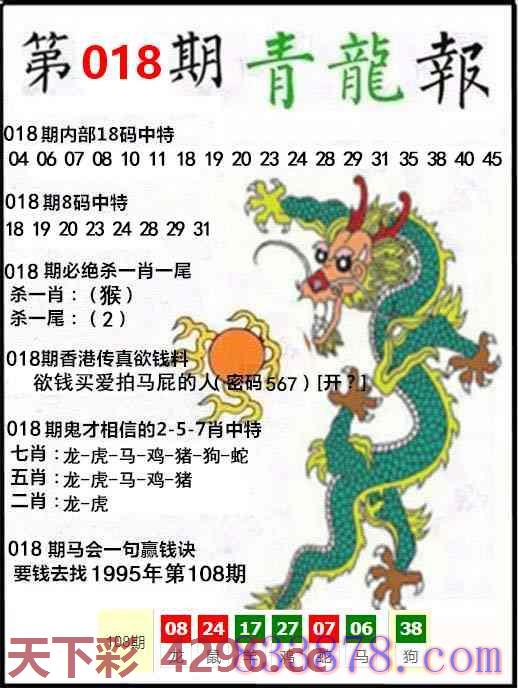 第018期青龍報
018期内部18码中特
04 06 07 08 10 11 18 19 20 23 24 28 29 31 35 38 40 45
018期8码中特
18 19 20 23 24 28 29 31
018 期必绝杀一肖一尾
杀一肖：（猴）
杀一尾：（2）
018期香港传真欲钱料
欲钱买爱拍马屁的人(密码567)[开？]
018期鬼才相信的2-5-7肖中特
七肖：龙-虎-马-鸡-猪-狗-蛇
五肖：龙-虎-马-鸡-猪
二肖：龙-虎
018 期马会一句赢钱诀
要钱去找1995年第108期
108期 08 24 17 27 07 06 38
龙 鼠 鸡 蛇 马 狗
天下彩